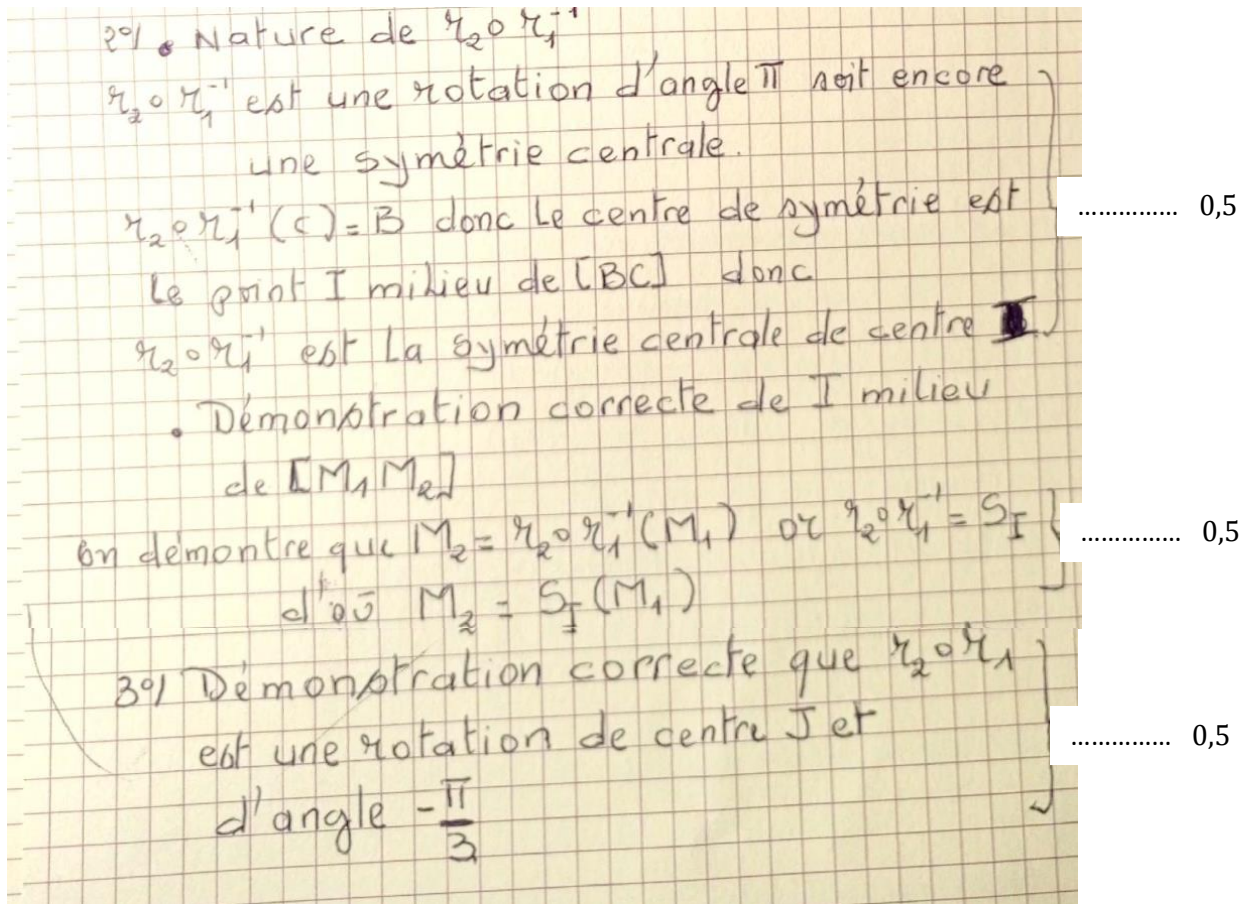 2°/ • Nature de r₂∘r₁⁻¹
r₂∘r₁⁻¹ est une rotation d'angle π soit encore
une symétrie centrale.
r₂∘r₁⁻¹(C)=B donc Le centre de symétrie est
............... 0,5
Le point I milieu de [BC] donc
r₂∘r₁⁻¹ est La symétrie centrale de centre I
• Démonstration correcte de I milieu
de [M₁M₂]
on démontre que M₂ = r₂∘r₁⁻¹(M₁) or r₂∘r₁⁻¹ = S_I
............... 0,5
d'où M₂ = S_I(M₁)
3°/ Démonstration correcte que r₂∘r₁
est une rotation de centre J et
............... 0,5
d'angle -π/3